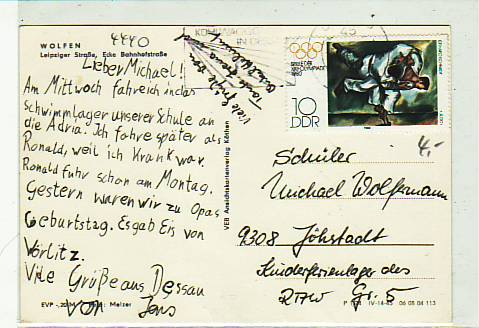 4440
WOLFEN
Leipziger Straße, Ecke Bahnhofstraße
Lieber Michael!
Am Mittwoch fahre ich ins
Schwimmlager unserer Schule an
die Adria. Ich fahre später als
Ronald, weil ich Krank war.
Ronald fuhr schon am Montag.
Gestern waren wir zu Opas
Geburtstag. Es gab Eis von
Wörlitz.
Viele Grüße aus Dessau
von Jens
EVP -,20 M Foto: Melzer
Viele Grüße
VEB Ansichtskartenverlag Köthen
SPIELE DER
XXII. OLYMPIADE
1980
10
DDR
4,-
Schüler
Michael Wolfsmann
9308 Jöhstadt
Kinderferienlager des
Gr. 5
IV-14-45 06 08 04 113